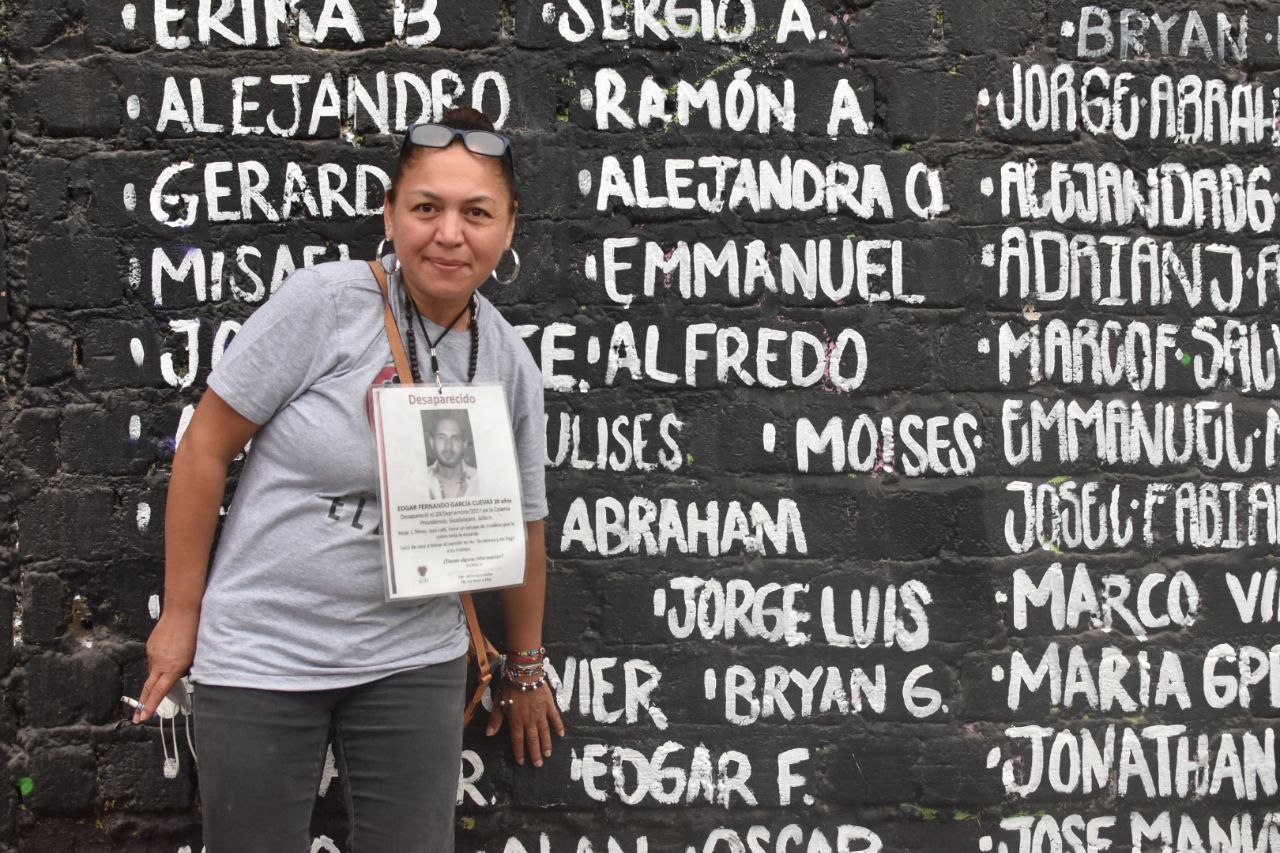 ERIKA B
ALEJANDRO
GERARD
MISAEL
J
TE
ULISES
ABRAHAM
JORGE LUIS
VIER
R.
SERGIO A.
RAMÓN A.
ALEJANDRA Q.
EMMANUEL
ALFREDO
MOISES
BRYAN G.
EDGAR F.
OSCAR
BRYAN
JORGE ABRAH
ALEJANDRO G
ADRIAN J. A
MARCO F. SALV
EMMANUEL M
JOSE L. FABIAN
MARCO VI
MARIA GP
JONATHAN
JOSE MANU
Desaparecido
EDGAR FERNANDO GARCÍA CUEVAS
Desapareció el 20/Septiembre/2017 en la Colonia
Providencia, Guadalajara, Jalisco.
¿Tienes alguna información?
EL